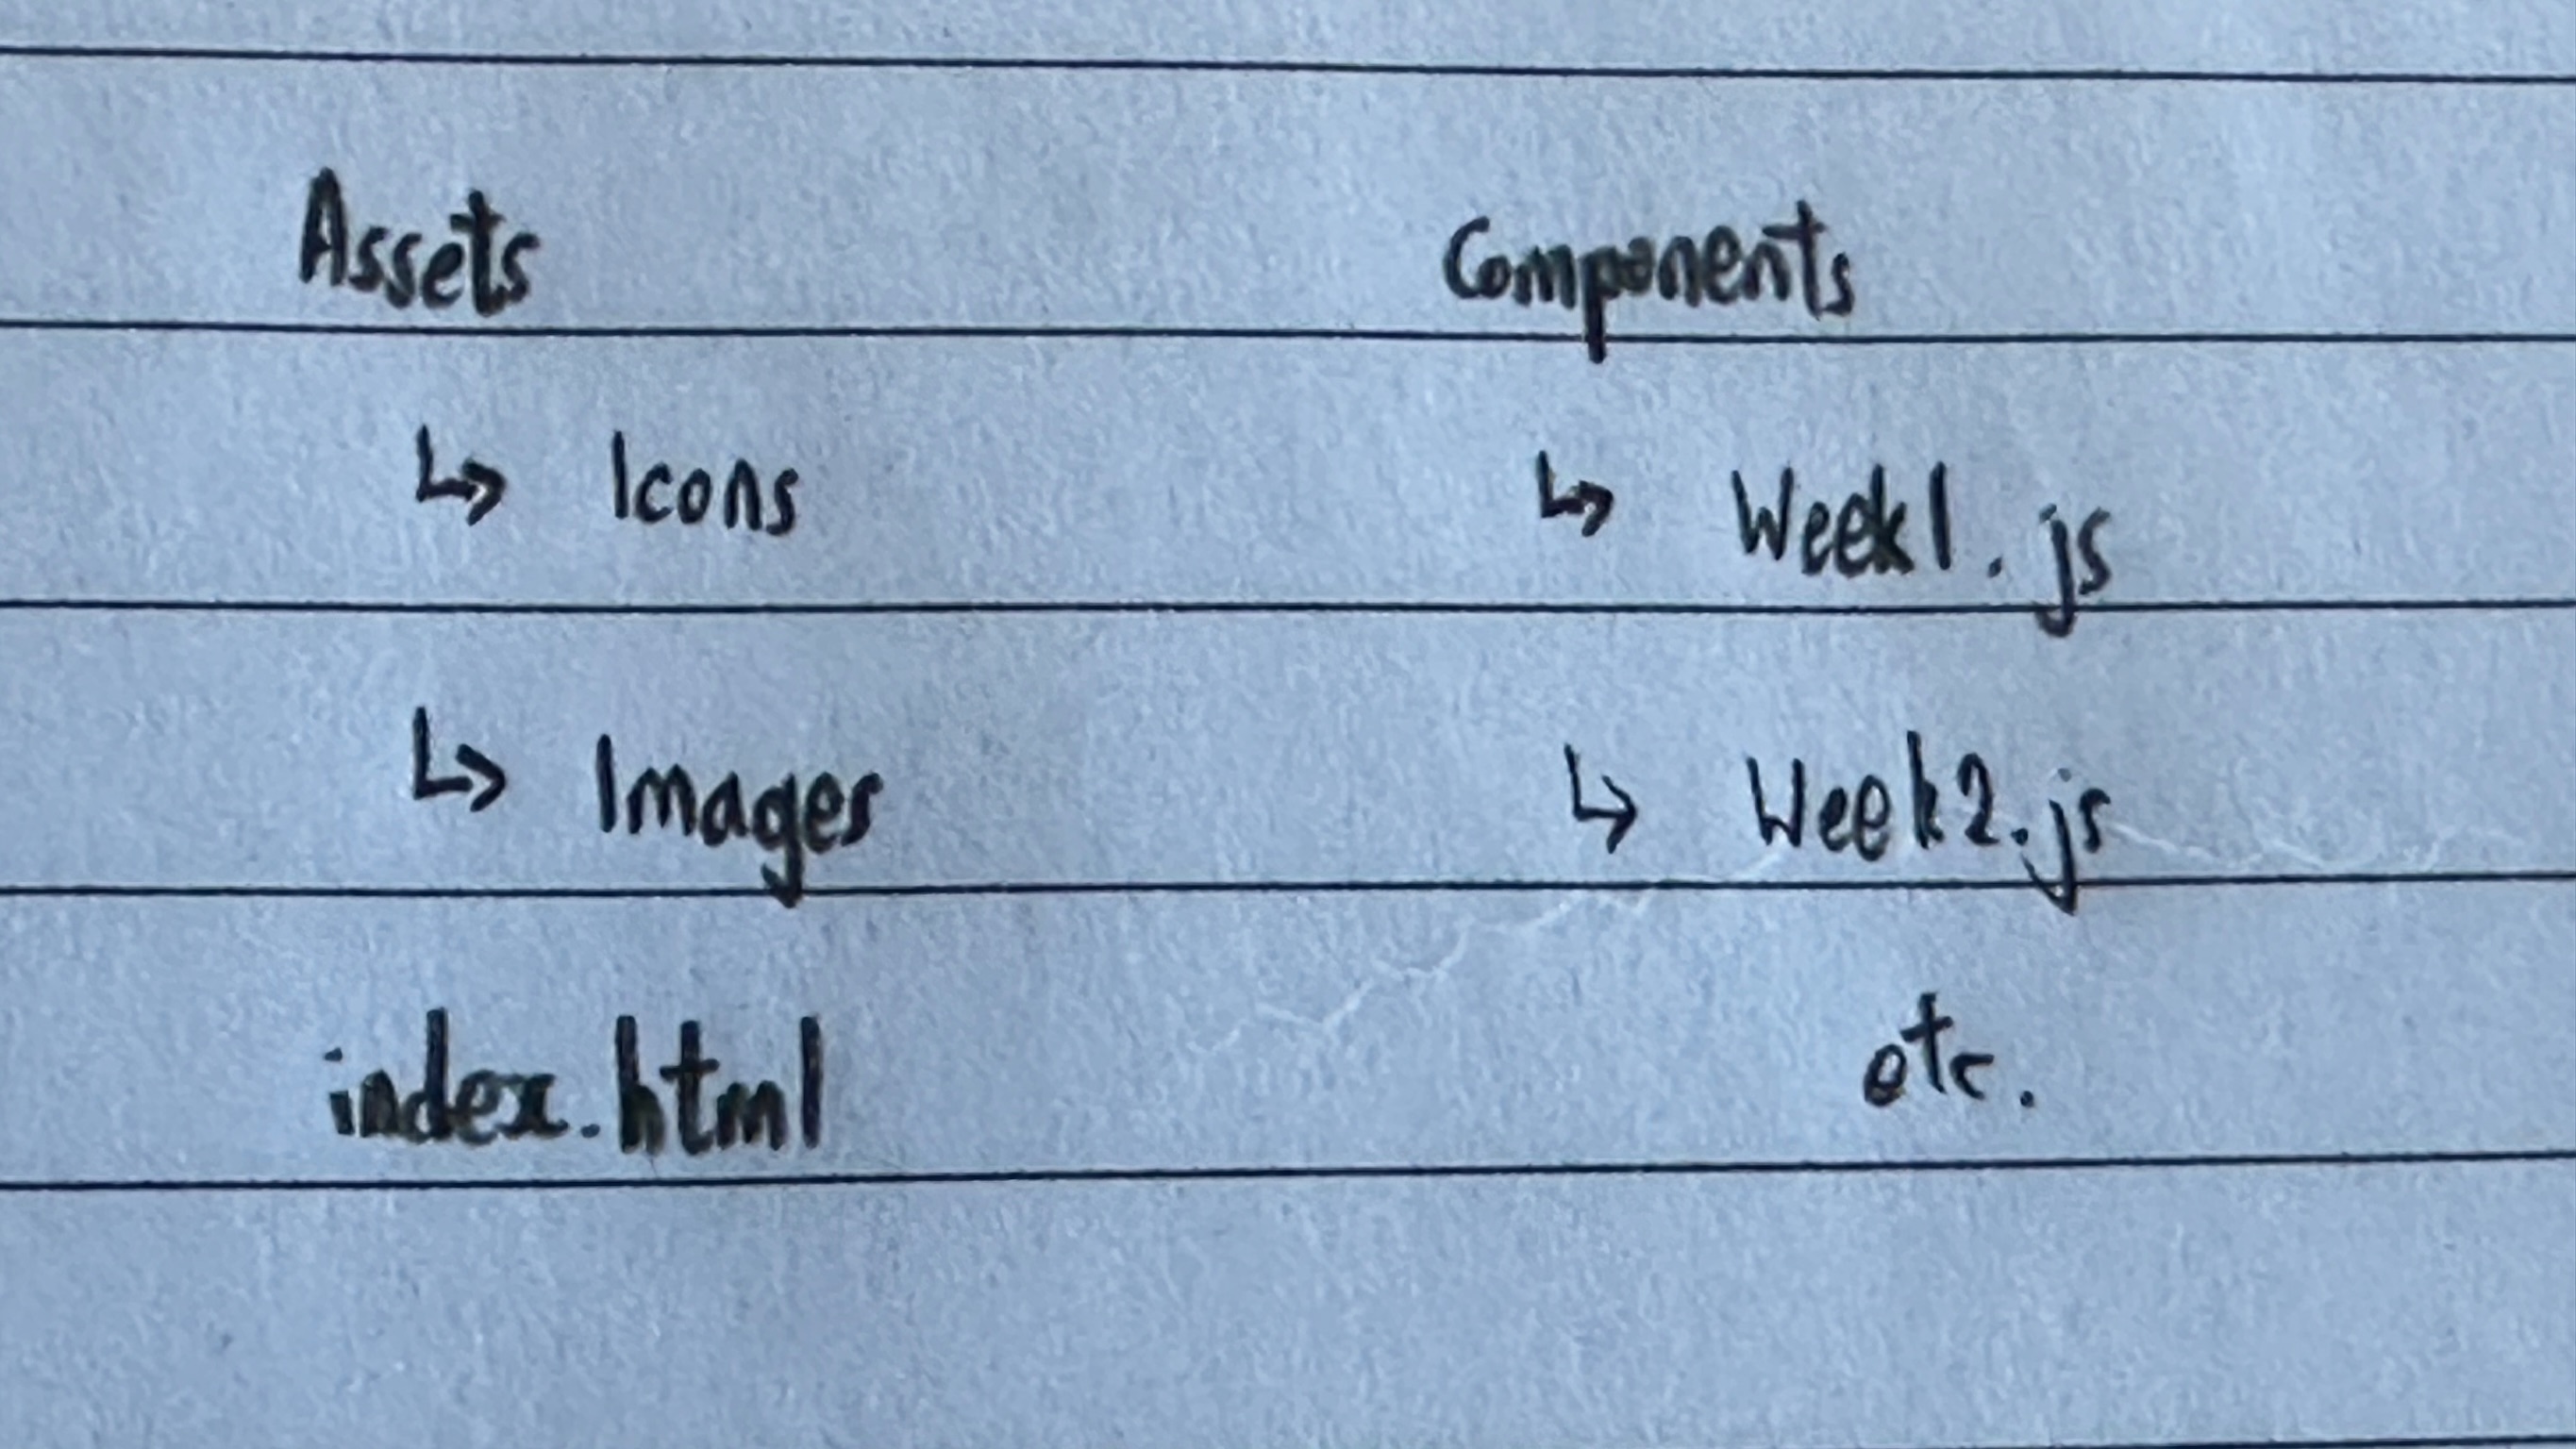 Assets
↳ Icons
↳ Images
index.html
Components
↳ Week1.js
↳ Week2.js
etc.